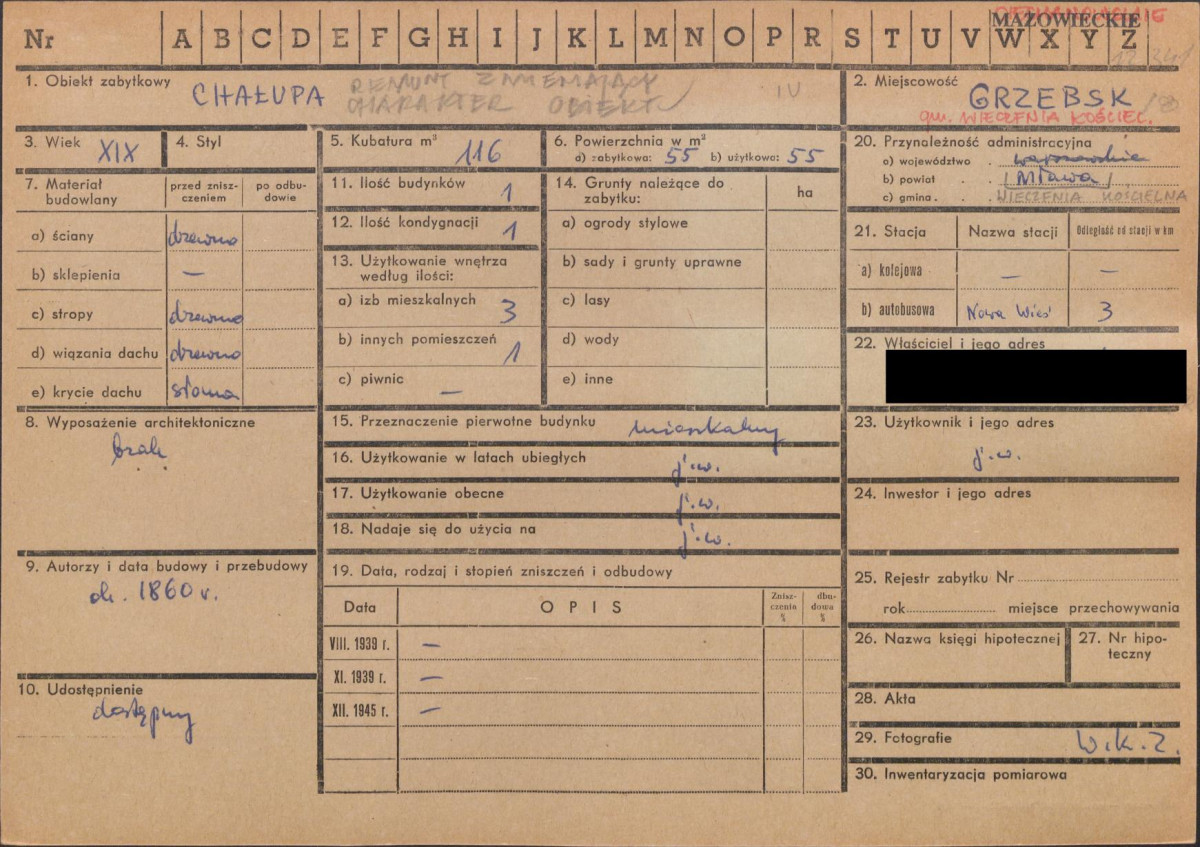 MAZOWIECKIE
Nr A B C D E F G H I J K L M N O P R S T U V W X Y Z
1. Obiekt zabytkowy CHAŁUPA
REMONT ZMIENIAJĄCY
CHARAKTER OBIEKTU
IV
2. Miejscowość
GRZEBSK
gm. WIECZFNIA KOŚCIEL.
3. Wiek XIX
4. Styl
5. Kubatura m³ 116
6. Powierzchnia w m²
a) zabytkowa: 55 b) użytkowa: 55
7. Materiał budowlany
przed zniszczeniem
po odbudowie
a) ściany drzewno
b) sklepienia —
c) stropy drzewno
d) wiązania dachu drzewno
e) krycie dachu słoma
8. Wyposażenie architektoniczne
brak
9. Autorzy i data budowy i przebudowy
ok. 1860 r.
10. Udostępnienie
dostępny
11. Ilość budynków 1
12. Ilość kondygnacji 1
13. Użytkowanie wnętrza
według ilości:
a) izb mieszkalnych 3
b) innych pomieszczeń 1
c) piwnic —
14. Grunty należące do
zabytku:
ha
a) ogrody stylowe
b) sady i grunty uprawne
c) lasy
d) wody
e) inne
15. Przeznaczenie pierwotne budynku mieszkalny
16. Użytkowanie w latach ubiegłych j.w.
17. Użytkowanie obecne j.w.
18. Nadaje się do użycia na j.w.
19. Data, rodzaj i stopień zniszczeń i odbudowy
Data OPIS Zniszczenia % dbudowa %
VIII. 1939 r. —
XI. 1939 r. —
XII. 1945 r. —
20. Przynależność administracyjna
a) województwo . warszawskie
b) powiat . . Mława
c) gmina . . WIECZFNIA KOŚCIELNA
21. Stacja Nazwa stacji Odległość od stacji w km
a) kolejowa — —
b) autobusowa Nowa Wieś 3
22. Właściciel i jego adres
23. Użytkownik i jego adres
j.w.
24. Inwestor i jego adres
25. Rejestr zabytku Nr
rok miejsce przechowywania
26. Nazwa księgi hipotecznej
27. Nr hipoteczny
28. Akta
29. Fotografie W.K.Z.
30. Inwentaryzacja pomiarowa